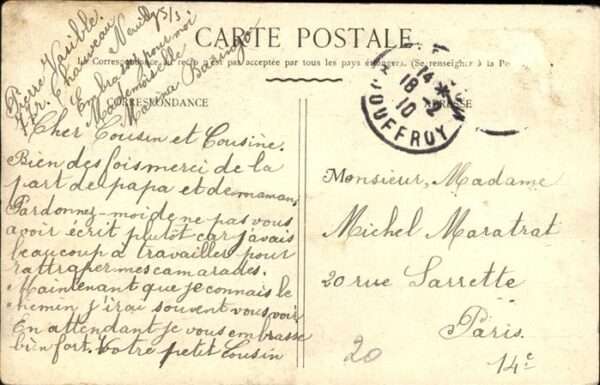 Pierre Vasible.
7 r. Chauveau Neuilly s/s.
Embrassez pour moi
Mademoiselle
Marina
CARTE POSTALE
Correspondance au recto n'est pas acceptée par tous les pays étrangers. (Se renseigner à la P
CORRESPONDANCE
ADRESSE
14 *
18 - 2
10
JOUFFROY
Cher Cousin et Cousine.
Bien des fois merci de la
part de papa et de maman,
Pardonnez-moi de ne pas vous
avoir écrit plutôt car j'avais
beaucoup à travailler pour
rattraper mes camarades.
Maintenant que je connais le
chemin j'irai souvent vous voir
En attendant je vous embrasse
bien fort. Votre petit Cousin
Monsieur, Madame
Michel Maratrat
20 rue Sarrette
Paris.
14e
20